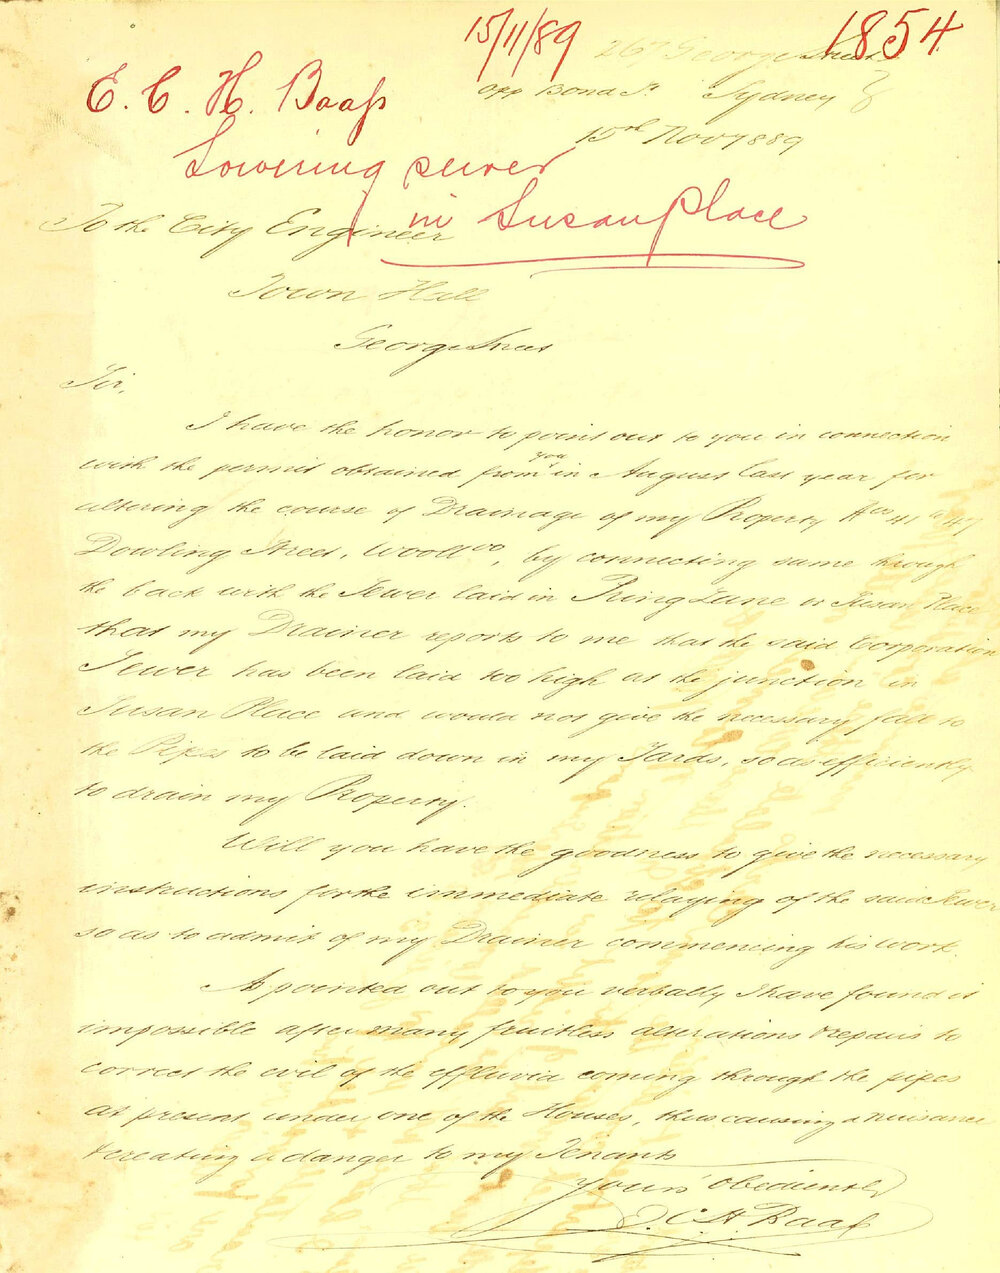 15/11/89
1854
E. C. H. Baass
Lowering sewer
in Susan Place
267 George Street
opp Bond St Sydney
15th Nov 1889
To the City Engineer
Town Hall
George Street
Sir,
I have the honor to point out to you in connection
with the permit obtained from you in August last year for
altering the course of Drainage of my Property Nos 41 to 47
Dowling Street, Woolloo, by connecting same through
the back with the Sewer laid in Ring Lane or Susan Place
that my Drainer reports to me that the said Corporation
Sewer has been laid too high at the junction in
Susan Place and would not give the necessary fall to
the Pipes to be laid down in my Yards, so as efficiently
to drain my Property.
Will you have the goodness to give the necessary
instructions for the immediate relaying of the said Sewer
so as to admit of my Drainer commencing his work.
As pointed out to you verbally I have found it
impossible after many fruitless alterations & repairs to
correct the evil of the effluvia coming through the pipes
at present under one of the Houses, thus causing a nuisance
& creating a danger to my Tenants
Yours obediently
C H Baass